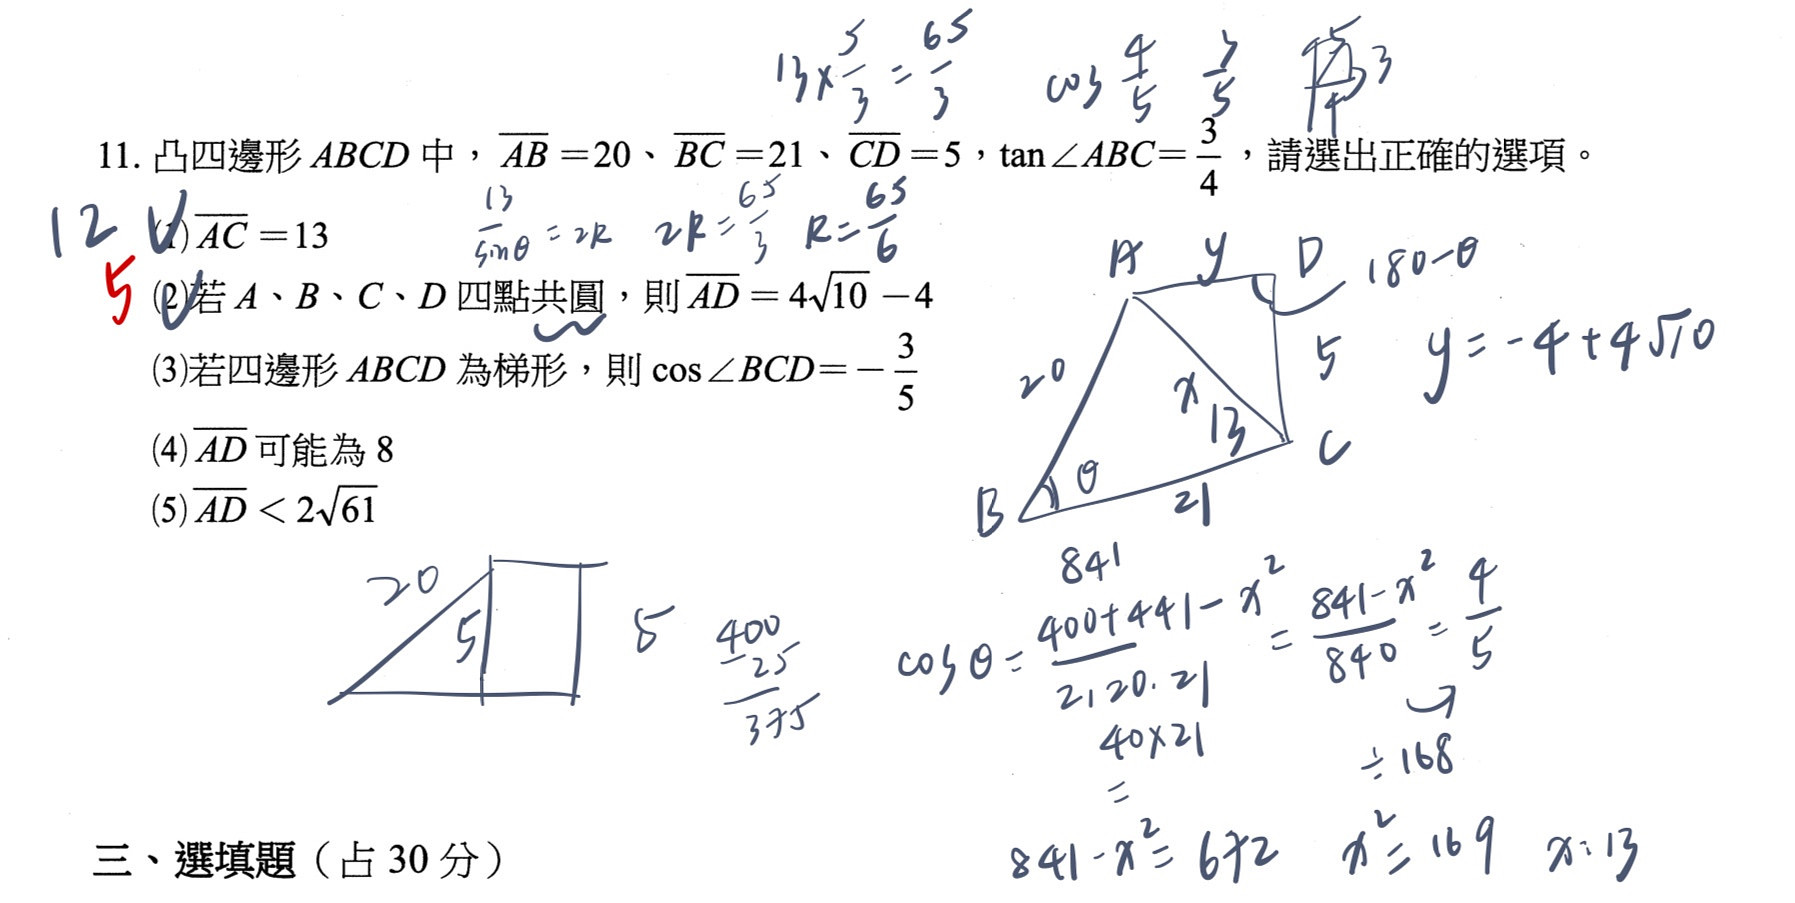 13×5/3 = 65/3 cos 4/5 3/5 5 3 4
11. 凸四邊形 ABCD 中，AB = 20、BC = 21、CD = 5，tan∠ABC = 3/4，請選出正確的選項。
12 5
(1) AC = 13
13/sinθ = 2R 2R = 65/3 R = 65/6
(2)若 A、B、C、D 四點共圓，則 AD = 4√10 − 4
(3)若四邊形 ABCD 為梯形，則 cos∠BCD = − 3/5
(4) AD 可能為 8
(5) AD < 2√61
A y D 180-θ
20 x 13 5 y = -4+4√10
B θ 21 C
20 5 5
400
-25
375
841
cosθ = 400+441-x²/2.20.21 = 841-x²/840 = 4/5
40×21 ÷168
=
841-x² = 672 x² = 169 x = 13
三、選填題（占 30 分）